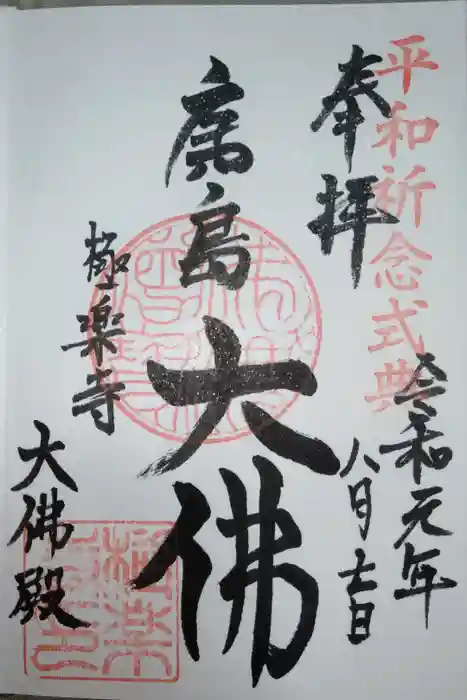 平和祈念式典
奉拝
令和元年
八月七日
廣島大佛
極楽寺
大佛殿